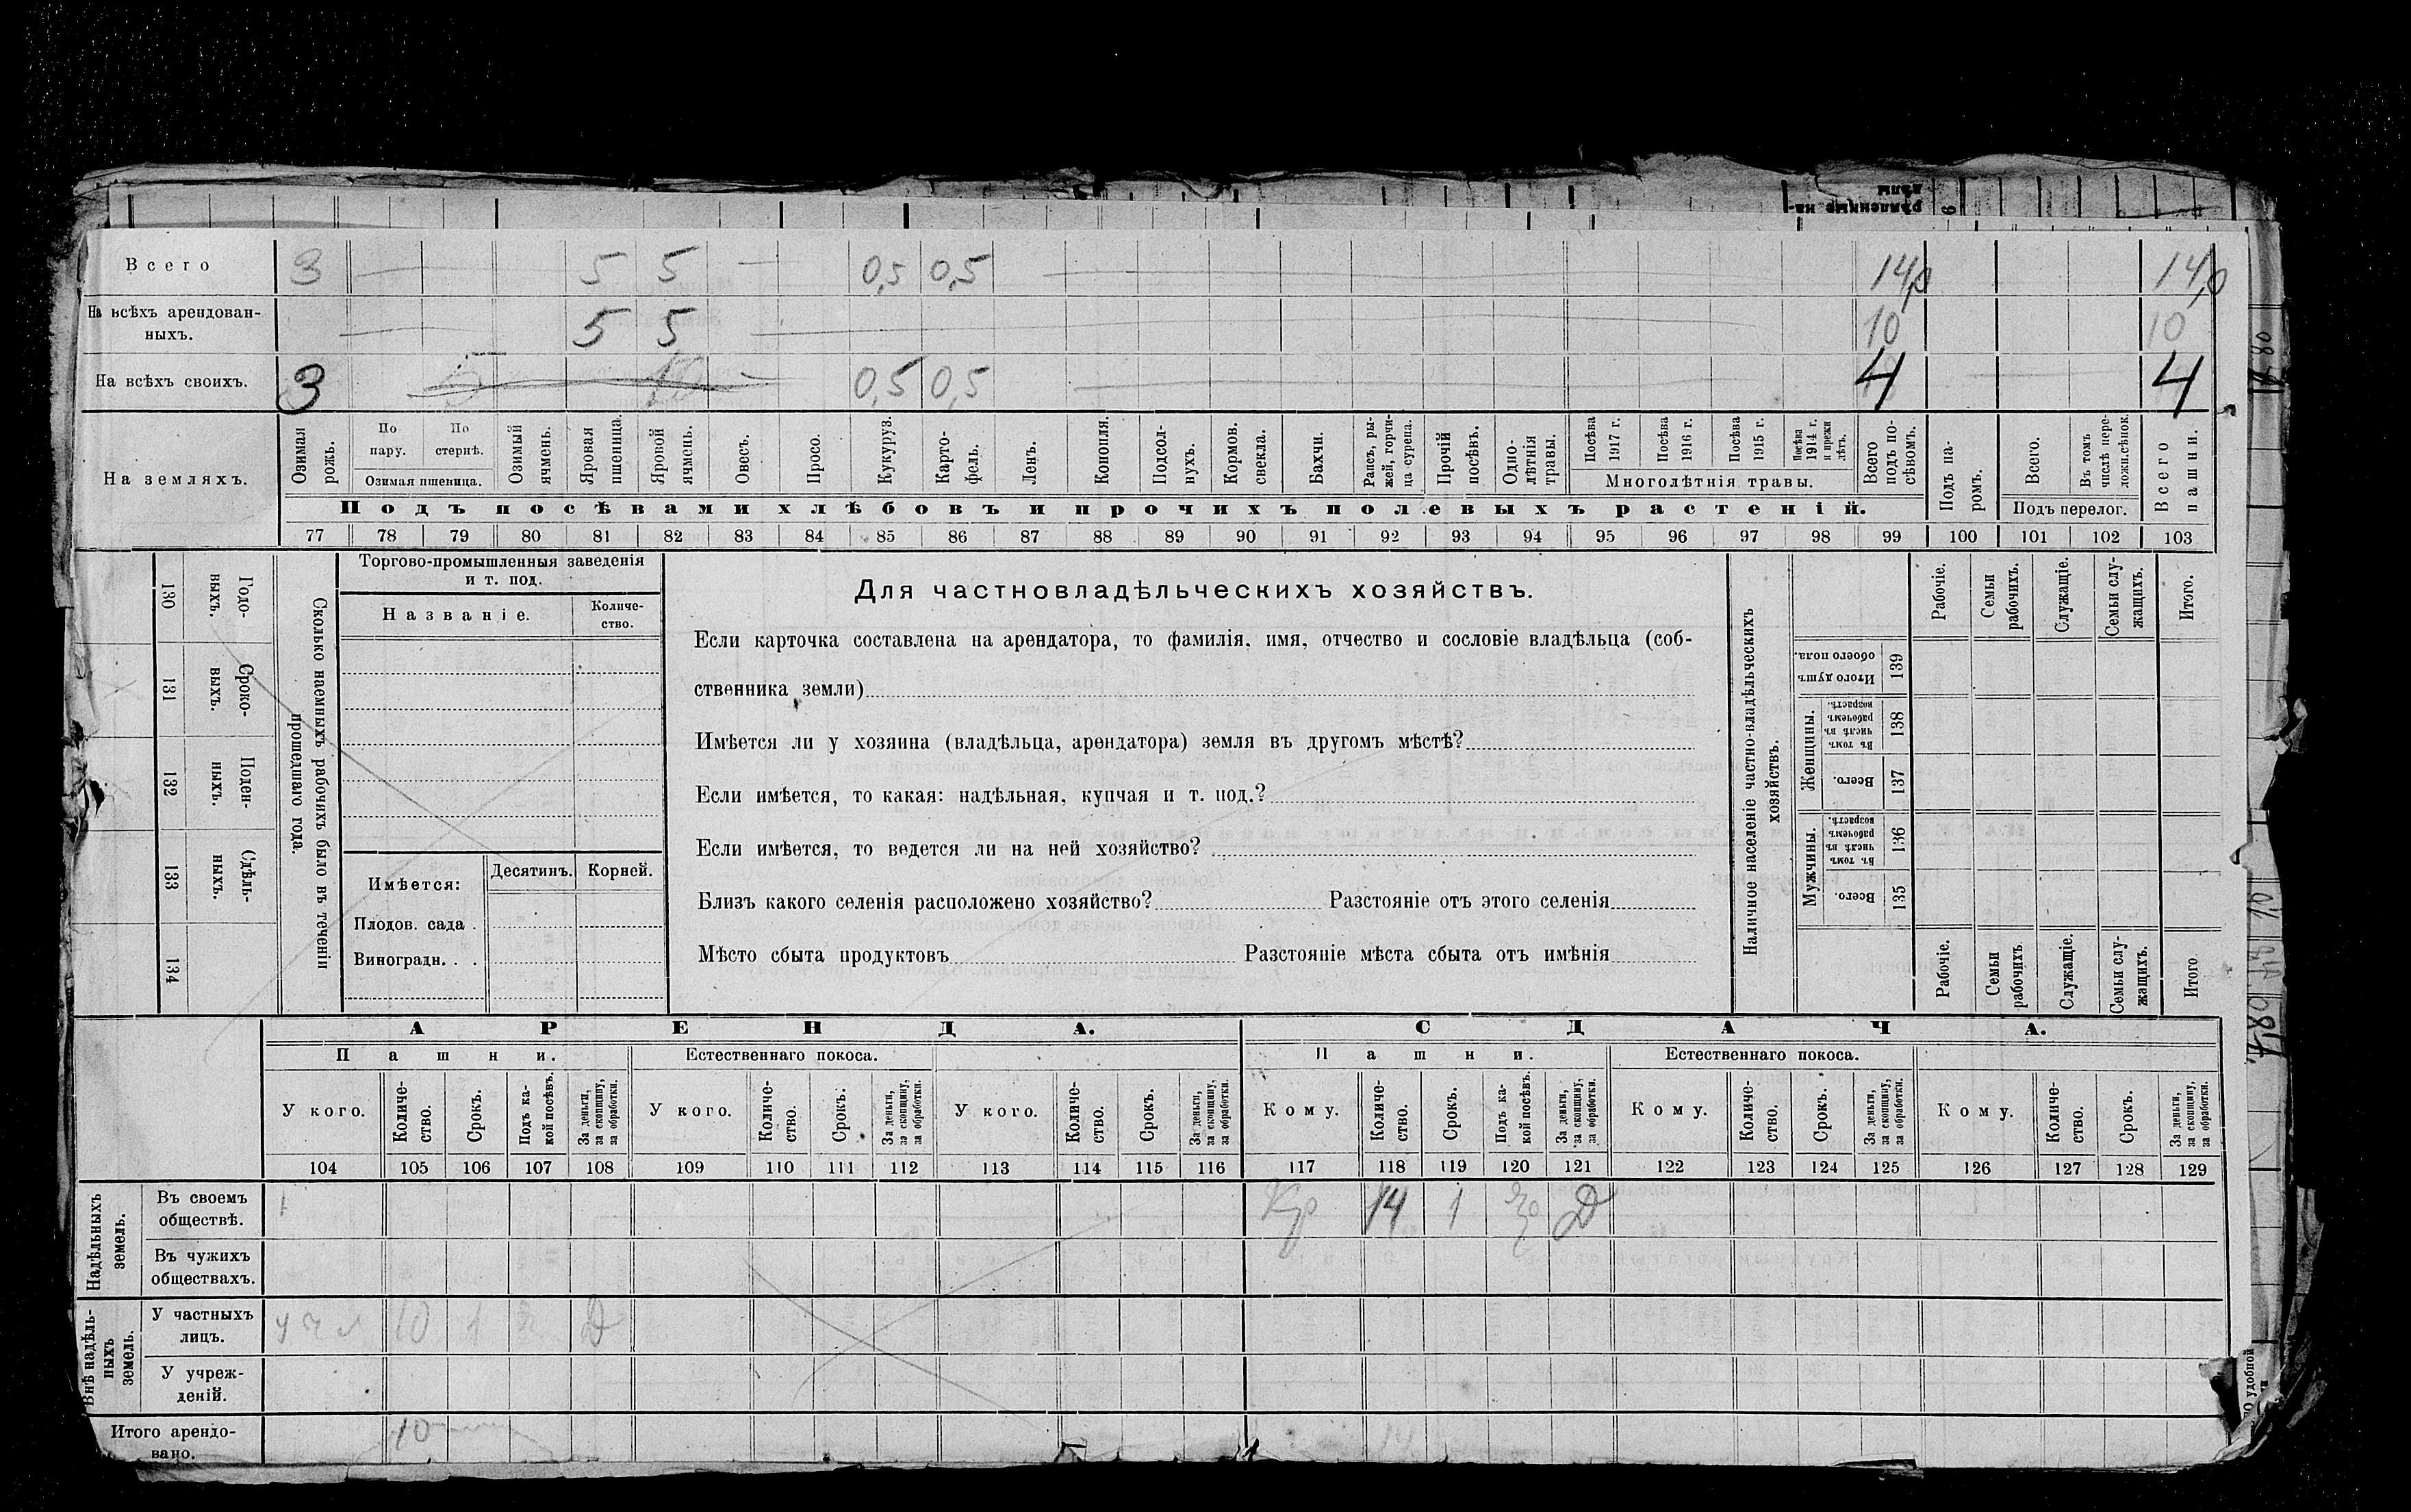 Всего 3 5 5 0,5 0,5 14,0 14,0
На всѣхъ арендован-
ныхъ. 5 5 10 10
На всѣхъ своихъ. 3 0,5 0,5 4 4
На земляхъ.
Озимая рожь.
По пару.
По стернѣ.
Озимая пшеница.
Озимый ячмень.
Яровая пшеница.
Яровой ячмень.
Овесъ.
Просо.
Кукуруз.
Карто-
фель.
Ленъ.
Конопля.
Подсол-
нухъ.
Кормов.
свекла.
Бахчи.
Рапсъ, ры-
жей, горчи-
ца сурепа.
Прочій
посѣвъ.
Одно-
лѣтнія
травы.
Посѣва
1917 г.
Посѣва
1916 г.
Посѣва
1915 г.
Посѣва
1914 г.
и прежн
лѣтъ.
Многолѣтнія травы.
Всего
подъ по-
сѣвомъ.
Подъ па-
ромъ.
Всего.
Въ томъ
числѣ пере-
ложн.сѣнок.
Подъ перелог.
Всего
пашни.
Подъ посѣвами хлѣбовъ и прочихъ полевыхъ растеній.
77 78 79 80 81 82 83 84 85 86 87 88 89 90 91 92 93 94 95 96 97 98 99 100 101 102 103
Годо-
выхъ.
130
Сроко-
выхъ.
131
Поден-
ныхъ.
132
Сдѣль-
ныхъ.
133
134
Сколько наемныхъ рабочихъ было въ теченіи
прошедшаго года.
Торгово-промышленныя заведенія
и т. под.
Названіе.
Количе-
ство.
Имѣется:
Десятинъ.
Корней.
Плодов. сада .
Виноградн. . .
Для частновладѣльческихъ хозяйствъ.
Если карточка составлена на арендатора, то фамилія, имя, отчество и сословіе владѣльца (соб-
ственника земли)
Имѣется ли у хозяина (владѣльца, арендатора) земля въ другомъ мѣстѣ?
Если имѣется, то какая: надѣльная, купчая и т. под.?
Если имѣется, то ведется ли на ней хозяйство?
Близъ какого селенія расположено хозяйство? Разстояніе отъ этого селенія
Мѣсто сбыта продуктовъ Разстояніе мѣста сбыта отъ имѣнія
Наличное населеніе частно-владѣльческихъ
хозяйствъ.
Рабочіе.
Семьи
рабочихъ.
Служащіе.
Семьи слу-
жащихъ.
Итого.
Итого душъ
обоего пола.
139
Женщины.
Въ томъ
числѣ въ
рабочемъ
возрастѣ.
138
Всего.
137
Мужчины.
Въ томъ
числѣ въ
рабочемъ
возрастѣ.
136
Всего.
135
Рабочіе.
Семьи
рабочихъ
Служащіе.
Семьи слу-
жащихъ.
Итого
АРЕНДА. СДАЧА.
Пашни. Естественнаго покоса. Пашни. Естественнаго покоса.
У кого.
Количе-
ство.
Срокъ.
Подъ ка-
кой посѣвъ.
За деньги,
за скопщину,
за обработки.
У кого.
Количе-
ство.
Срокъ.
За деньги,
за скопщину,
за обработки.
У кого.
Количе-
ство.
Срокъ.
За деньги,
за скопщину,
за обработки.
Кому.
Количе-
ство.
Срокъ.
Подъ ка-
кой посѣвъ.
За деньги,
за скопщину,
за обработки.
Кому.
Количе-
ство.
Срокъ.
За деньги,
за скопщину,
за обработки.
Кому.
Количе-
ство.
Срокъ.
За деньги,
за скопщину,
за обработки.
104 105 106 107 108 109 110 111 112 113 114 115 116 117 118 119 120 121 122 123 124 125 126 127 128 129
Надѣльныхъ
земель.
Въ своемъ
обществѣ. Кр 14 1 Д
Въ чужихъ
обществахъ.
Внѣ надѣль-
ныхъ
земель.
У частныхъ
лицъ. 10 1 Д
У учреж-
деній.
Итого арендо-
вано. 10 14